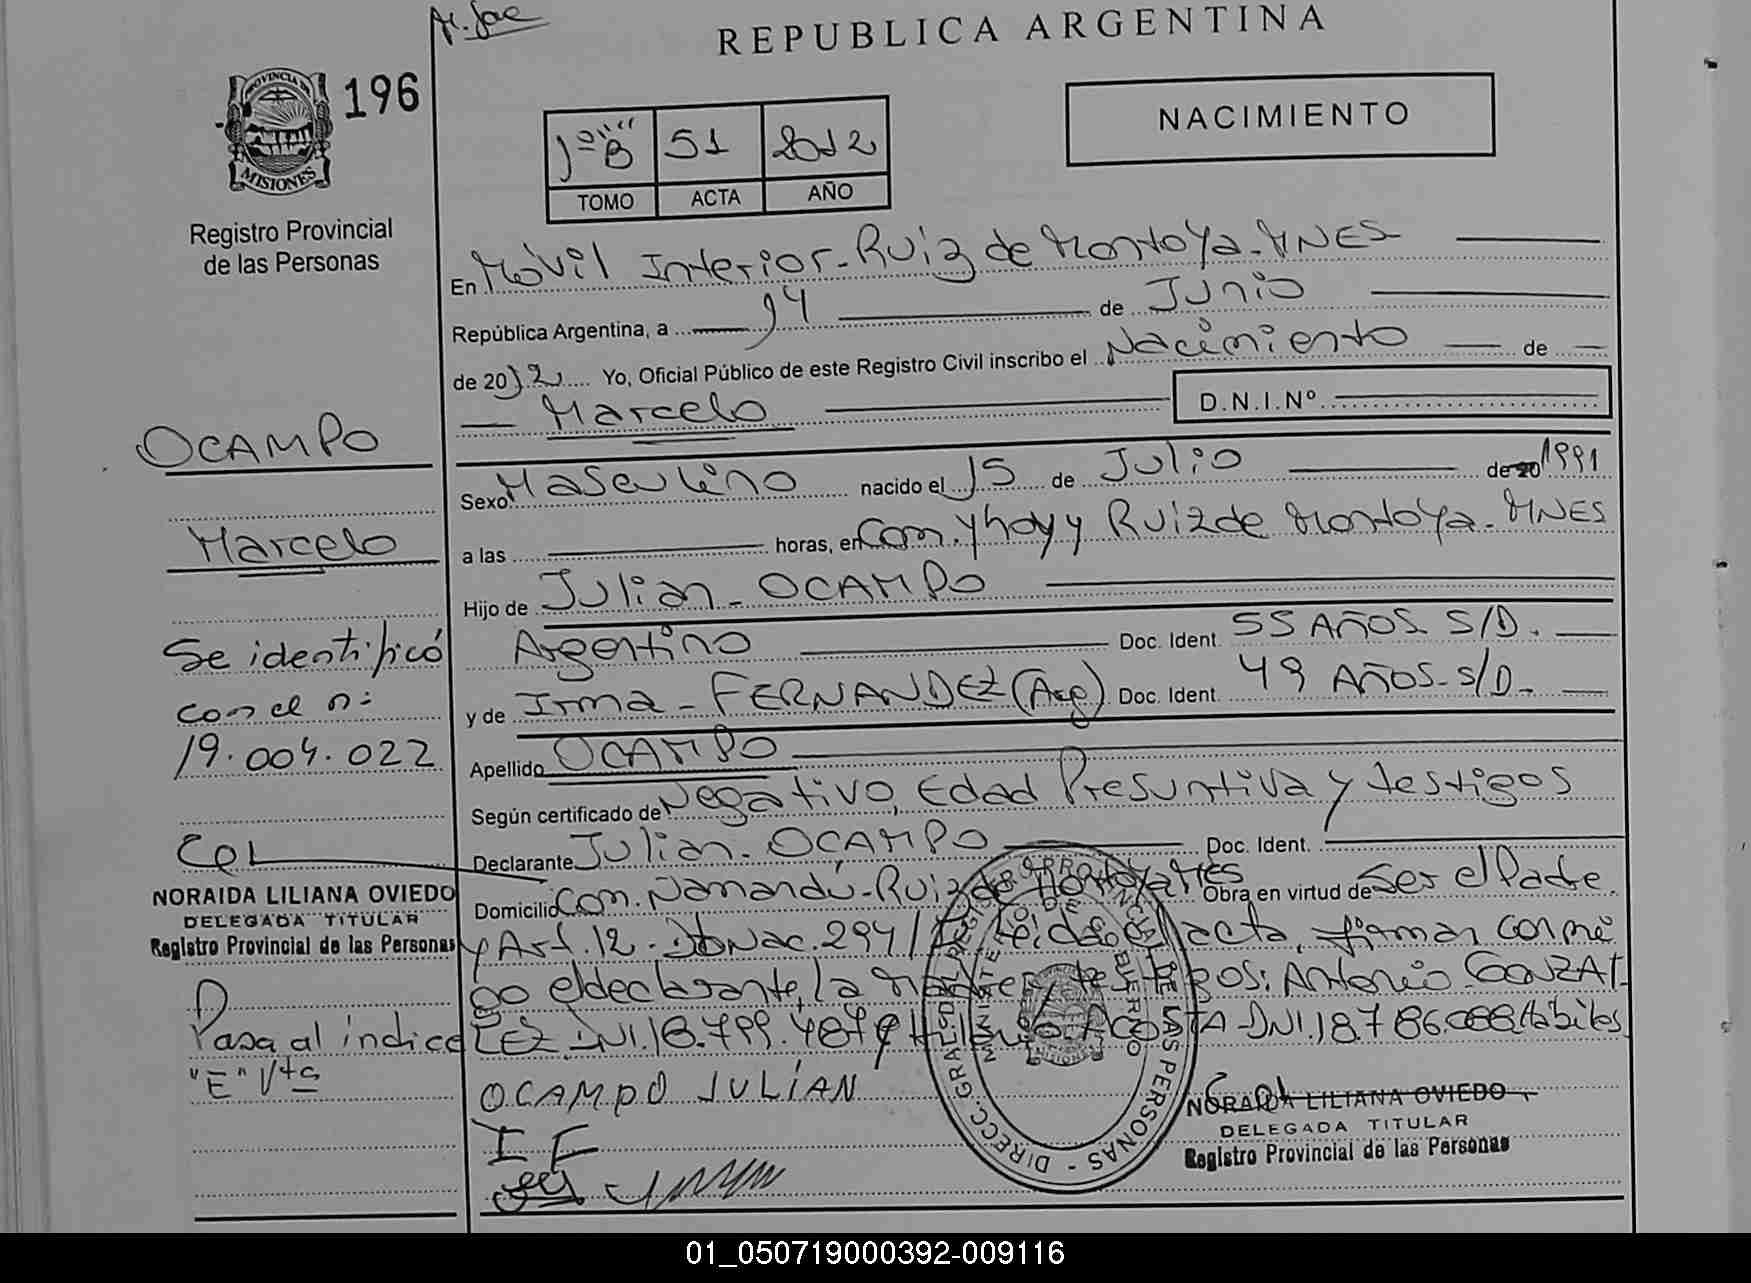 REPUBLICA ARGENTINA
PROVINCIA DE
MISIONES
196
Registro Provincial
de las Personas
NACIMIENTO
1º "B" 51 2012
TOMO ACTA AÑO
En Móvil Interior - Ruiz de Montoya - MNES
República Argentina, a 14 de Junio
de 2012 Yo, Oficial Público de este Registro Civil inscribo el Nacimiento de
Marcelo D.N.I.Nº
OCAMPO
Marcelo
Se identificó
con el nº
19.004.022
NORAIDA LILIANA OVIEDO
DELEGADA TITULAR
Registro Provincial de las Personas
Pasa al índice
"E" Vta
Sexo Masculino nacido el 15 de Julio de 20 1991
a las horas, en Com. y hoy y Ruiz de Montoya - MNES
Hijo de Julian - OCAMPO
Argentino Doc. Ident. 55 AÑOS S/D.
y de Irma - FERNANDEZ (Arg) Doc. Ident. 49 AÑOS - S/D.
Apellido OCAMPO
Según certificado de Negativo, Edad Presuntiva y testigos
Declarante Julian - OCAMPO Doc. Ident.
Domicilio Com. Ñamandú - Ruiz de Montoya MNES Obra en virtud de Ser el Padre
y Art. 12 - Dto Nac. 294/ Leida el acta, firman conmi
go el declarante, la madre y testigos: Antonio GONZA
LEZ DNI. 18.799.487 y ACOSTA - DNI. 18.786.088 Habiles
OCAMPO JULIÁN
I F
NORAIDA LILIANA OVIEDO
DELEGADA TITULAR
Registro Provincial de las Personas
DIRECC. GRAL. DEL REGISTRO PROVINCIAL DE LAS PERSONAS
01_050719000392-009116